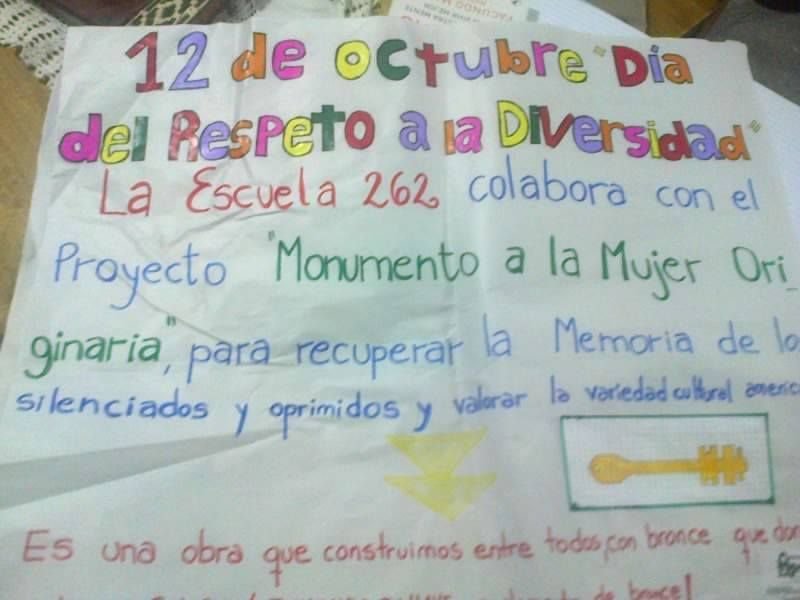 12 de octubre "Día
del Respeto a la Diversidad"
La Escuela 262 colabora con el
Proyecto "Monumento a la Mujer Ori_
ginaria", para recuperar la Memoria de lo
silenciados y oprimidos y valorar la variedad cultural americ
Es una obra que construimos entre todos, con bronce que don
de bronce!